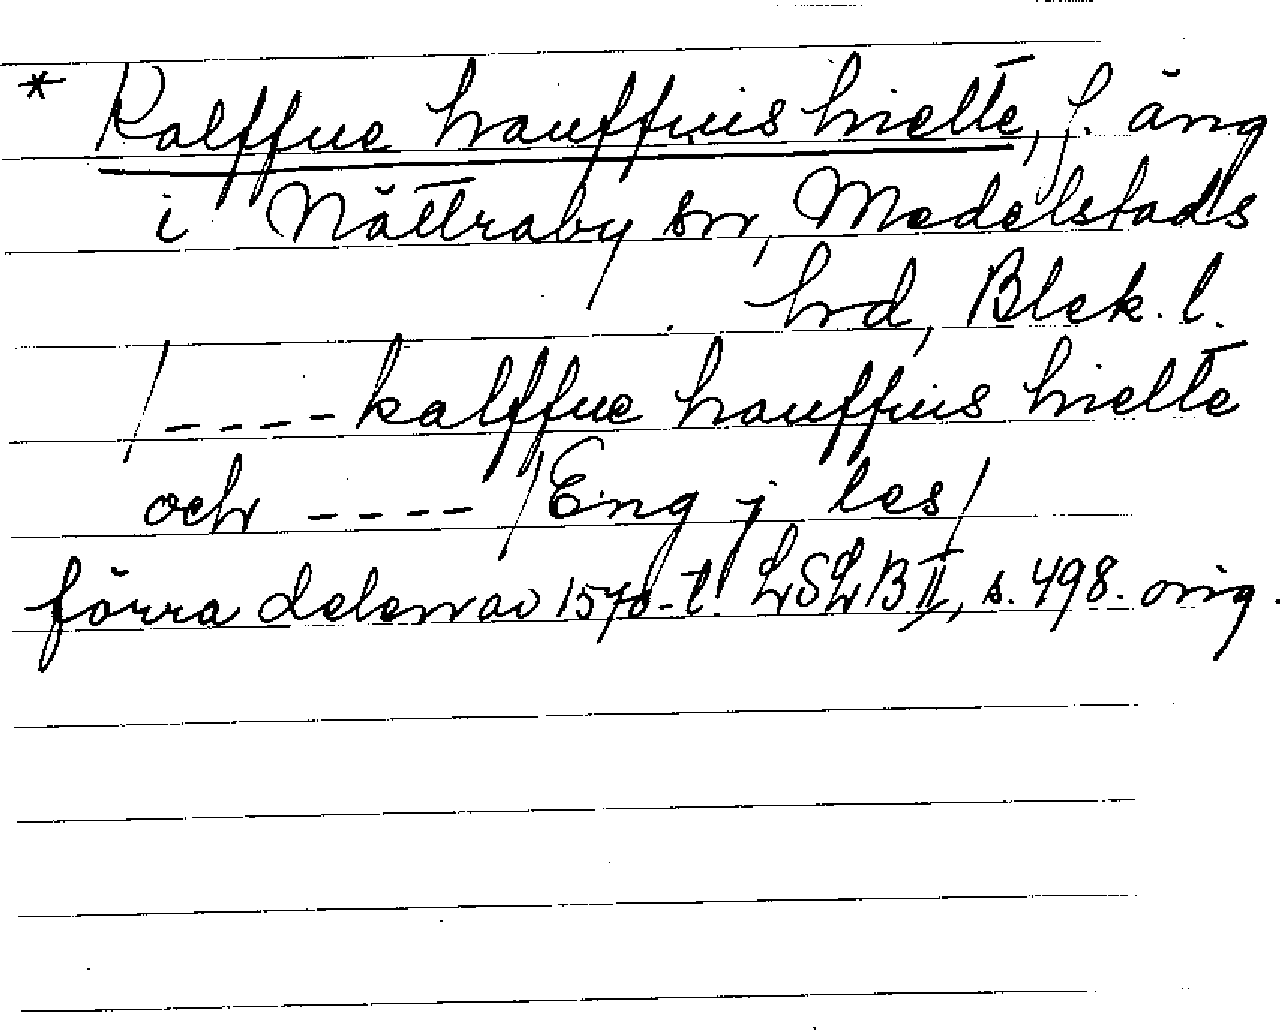 * Kalffue hauffuis hielte, f. äng
i Nättraby sn, Medelstads
hd, Blek. l.
/ - - - - kalffue hauffuis hielte
och - - - - / Eng j les /
förra delen av 1570-t. LSLB II, s. 498. orig.